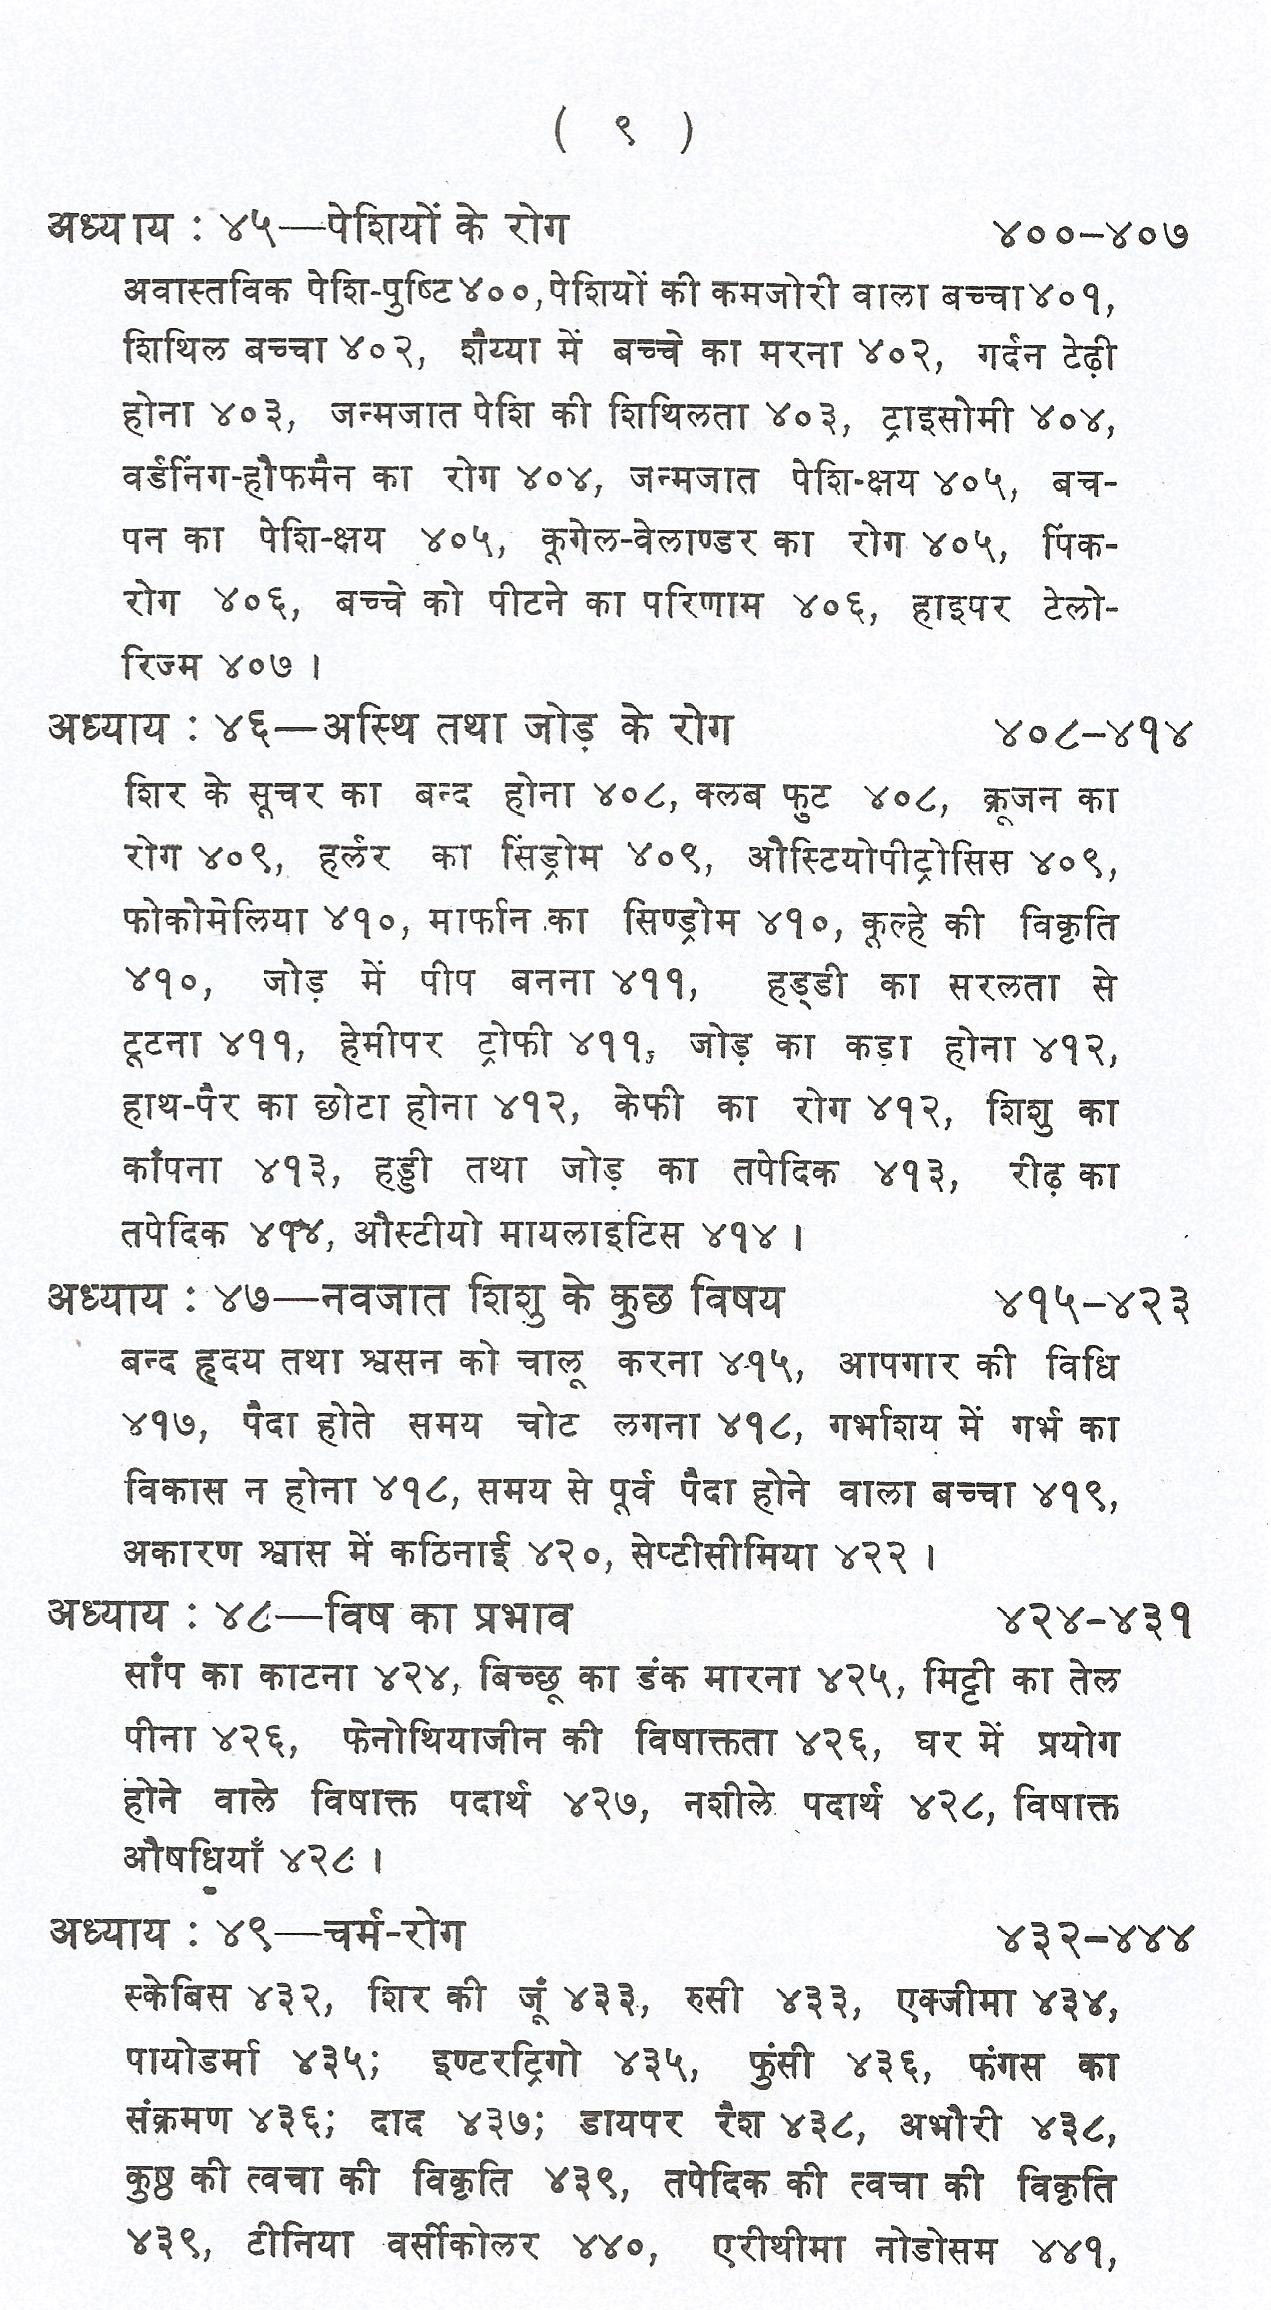 ( ९ )
अध्याय : ४५—पेशियों के रोग ४००–४०७
अवास्तविक पेशि-पुष्टि ४००, पेशियों की कमजोरी वाला बच्चा ४०१,
शिथिल बच्चा ४०२, शैय्या में बच्चे का मरना ४०२, गर्दन टेढ़ी
होना ४०३, जन्मजात पेशि की शिथिलता ४०३, ट्राइसोमी ४०४,
वर्डनिंग-हौफमैन का रोग ४०४, जन्मजात पेशि-क्षय ४०५, बच-
पन का पेशि-क्षय ४०५, कूगेल-वेलाण्डर का रोग ४०५, पिंक-
रोग ४०६, बच्चे को पीटने का परिणाम ४०६, हाइपर टेलो-
रिज्म ४०७ ।
अध्याय : ४६—अस्थि तथा जोड़ के रोग ४०८–४१४
शिर के सूचर का बन्द होना ४०८, क्लब फुट ४०८, क्रूजन का
रोग ४०९, हर्लर का सिंड्रोम ४०९, औस्टियोपीट्रोसिस ४०९,
फोकोमेलिया ४१०, मार्फान का सिण्ड्रोम ४१०, कूल्हे की विकृति
४१०, जोड़ में पीप बनना ४११, हड्‌डी का सरलता से
टूटना ४११, हेमीपर ट्रोफी ४११, जोड़ का कड़ा होना ४१२,
हाथ-पैर का छोटा होना ४१२, केफी का रोग ४१२, शिशु का
काँपना ४१३, हड्डी तथा जोड़ का तपेदिक ४१३, रीढ़ का
तपेदिक ४१४, औस्टीयो मायलाइटिस ४१४ ।
अध्याय : ४७—नवजात शिशु के कुछ विषय ४१५–४२३
बन्द हृदय तथा श्वसन को चालू करना ४१५, आपगार की विधि
४१७, पैदा होते समय चोट लगना ४१८, गर्भाशय में गर्भ का
विकास न होना ४१८, समय से पूर्व पैदा होने वाला बच्चा ४१९,
अकारण श्वास में कठिनाई ४२०, सेप्टीसीमिया ४२२ ।
अध्याय : ४८—विष का प्रभाव ४२४-४३१
साँप का काटना ४२४, बिच्छू का डंक मारना ४२५, मिट्टी का तेल
पीना ४२६, फेनोथियाजीन की विषाक्तता ४२६, घर में प्रयोग
होने वाले विषाक्त पदार्थ ४२७, नशीले पदार्थ ४२८, विषाक्त
औषधियाँ ४२८ ।
अध्याय : ४९—चर्म-रोग ४३२–४४४
स्केबिस ४३२, शिर की जूं ४३३, रुसी ४३३, एक्जीमा ४३४,
पायोडर्मा ४३५; इण्टरट्रिगो ४३५, फुंसी ४३६, फंगस का
संक्रमण ४३६; दाद ४३७; डायपर रैश ४३८, अभौरी ४३८,
कुष्ठ की त्वचा की विकृति ४३९, तपेदिक की त्वचा की विकृति
४३९, टीनिया वर्सीकोलर ४४०, एरीथीमा नोडोसम ४४१,